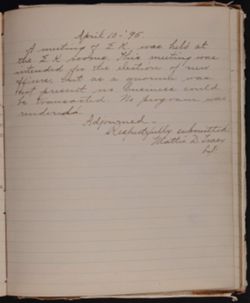 April 10-'95.
A meeting of E K was held at
the E K rooms. This meeting was
intended for the election of new
but as a quorum was
not present no business could
be transacted. No program was
rendered.
Adjourned -
Respectfully submitted
Mattie D. Tracy